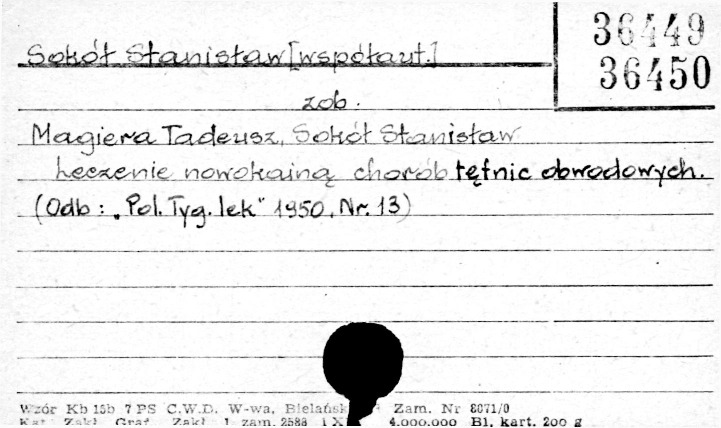 36449
36450
Sokół Stanisław [współaut.]
zob.
Magiera Tadeusz, Sokół Stanisław
Leczenie nowokainą chorób tętnic obwodowych.
(Odb: „Pol. Tyg. lek" 1950, Nr. 13)
Wzór Kb 15b 7 PS C.W.D. W-wa, Zam. Nr 8071/0
Zakł. Graf. Zakł. 1 zam. 2588 4.000.000 Bl. kart. 200 g